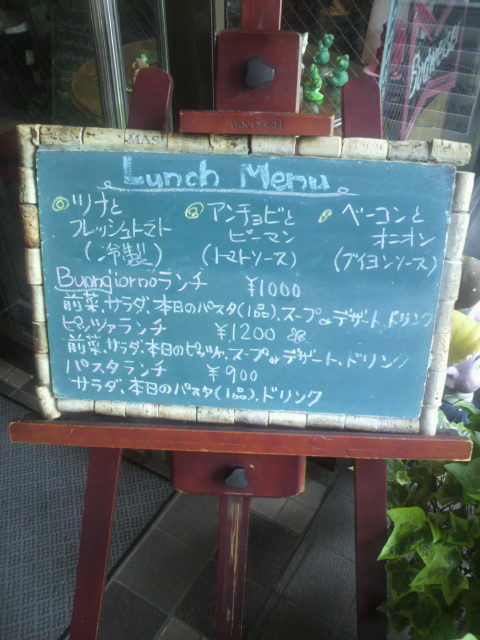 VAN GOGH
MAS
Lunch Menu
① ツナと
フレッシュトマト
(冷製)
② アンチョビと
ピーマン
(トマトソース)
ベーコンと
オニオン
(ブイヨンソース)
Buongiornoランチ ¥1000
前菜、サラダ、本日のパスタ(1品)、スープorデザート、ドリンク
ピッツァランチ ¥1200
前菜、サラダ、本日のピッツァ、スープorデザート、ドリンク
パスタランチ ¥900
サラダ、本日のパスタ(1品)、ドリンク